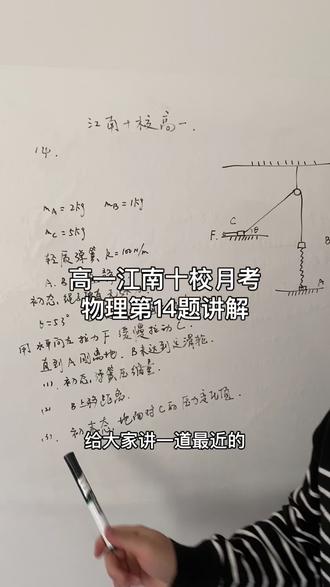 江南十校高一.
14.
mA = 2kg mB = 1kg
mC = 5kg
轻质弹簧, k=100N/m
A.B
F
C
θ
B
A
高一江南十校月考
物理第14题讲解
初态,
θ=53°
用水平向左拉力F缓慢拉动C.
直到A刚离地, B未达到定滑轮.
(1). 初态, 弹簧压缩量.
(2) B上升距离.
(3). 初末态, 地面对C的压力变化值.
给大家讲一道最近的